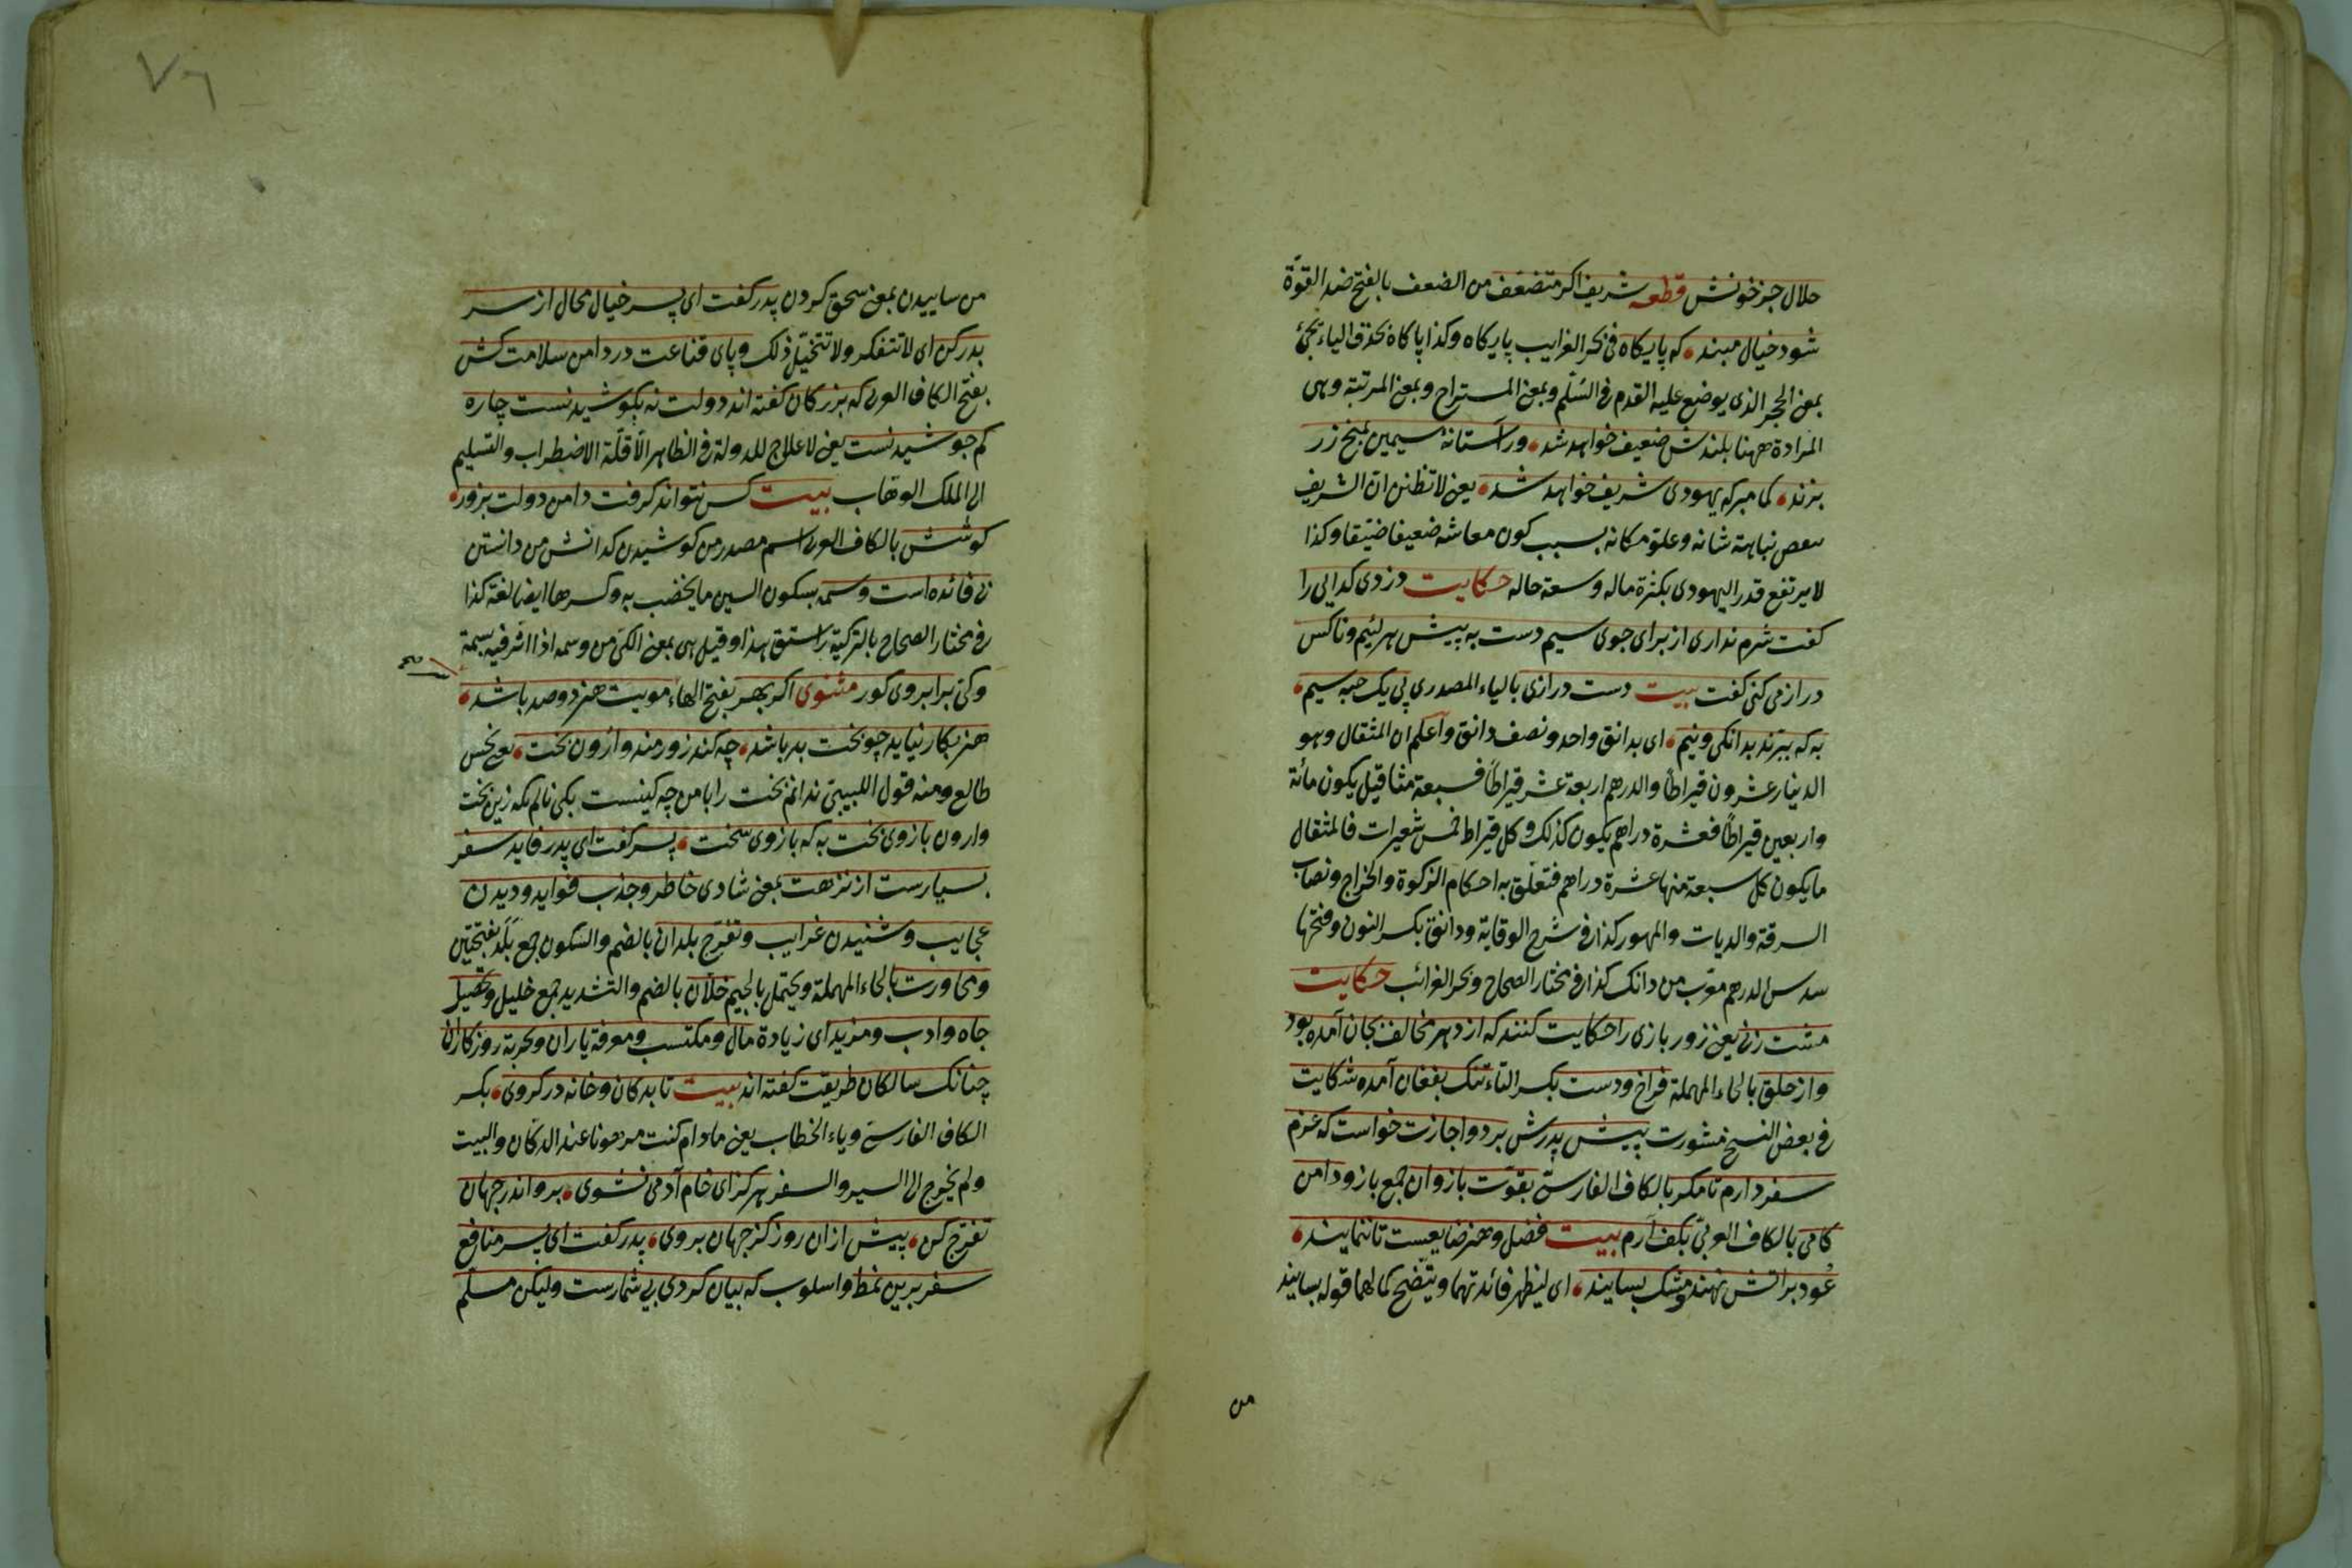 حلال جز خونش قطعه شریف اکر متضعّف من الضعف بالفتح ضد القوّة
شود خیال مبند که پایکاه فی بحر الغرایب پایکاه وکذا پاکاه بحذف الیاء یجئ
بمعنی الحجر الذی یوضع علیه القدم فی السّلّم وبمعنی المستراح وبمعنی المرتبة وهی
المرادة ههنا بلندش ضعیف خواهد شد ور آستانهٔ سیمین بمیخ زر
بزند کمان مبر که یهودی شریف خواهد شد یعنی لا تظنن ان الشریف
نباهة شانه وعلوّ مکانه بسبب کون معاشه ضعیفا ضیّقا وکذا
لا یرتفع قدر الیهودی بکثرة ماله وسعة حاله حکایت دزدی کدایی را
کفت شرم نداری از برای جوی سیم دست به پیش هر لئیم وناکس
دراز می کنی کفت بیت دست درازی بالیاء المصدری پی یک حبه سیم
به که ببرند بدانکی ونیم ای بدانق واحد ونصف دانق واعلم ان المثقال وهو
الدینار عشرون قیراطاً والدرهم اربعة عشر قیراطاً فسبعة مثاقیل یکون مائة
واربعین قیراطاً فعشرة دراهم یکون کذلک وکل قیراط خمس شعیرات فالمثقال
ما یکون کل سبعة منها عشرة دراهم فتعلّق به احکام الزکوة والخراج ونصاب
السرقة والدیات والمهور کذا فی شرح الوقایة ودانق بکسر النون وفتحها
سدس الدرهم معرّب من دانک کذا فی مختار الصحاح وبحر الغرائب حکایت
مشت زنی یعنی زور بازی را حکایت کنند که از دهر مخالف بجان آمده بود
واز حلق بالحاء المهملة فراخ ودست بکسر التاء تنک بفغان آمده شکایت
فی بعض النسخ مشورت پیش پدرش برد واجازت خواست که عزم
سفر دارم تا مکر بالکاف الفارسیّ بقوّت بازو ان جمع بازو دامن
کامی بالکاف العربیّ بکف آرم بیت فضل وهنر ضایعست تا ننمایند
عُود بر آتش نهند ومشک بسایند ای لیظهر فائدتهما ویتّضح کمالهما قوله بسایند
من
من ساییدن بمعنی سحق کردن پدر کفت ای پسر خیال محال از سر
بدر کن ای لا تتفکر ولا تتخیّل ذلک وپای قناعت در دامن سلامت کش
بفتح الکاف العربی که بزرکان کفته اند دولت نه بکوشیدنست چاره
کم جوشیدنست یعنی لا علاج للدولة فی الظاهر الّا قلّة الاضطراب والتسلیم
الی الملک الوهّاب بیت کس نتواند کرفت دامن دولت بزور
کوشش بالکاف العربی اسم مصدر من کوشیدن کدانش من دانستن
بی فائده است وسمه بسکون السین ما یخضب به وکسرها ایضا لغة کذا
فی مختار الصحاح بالترکیة راستق هذا وقیل هی بمعنی الکیّ من وسمه اذا اثر فیه بسمة
وکیّ بر ابروی کور مثنوی اکر بهر بفتح الهاء مویت هنر دو صد باشد
هنر بکار نیاید چو بخت بد باشد چه کند زورمند واژون بخت یعنی نحس
طالع ومنه قول اللبیبی ندانم بخت را با من چه کینست بکی نالم بکه زین بخت
وارون بازوی بخت به که بازوی سخت پسر کفت ای پدر فاید سفر
بسیارست از نزهت بمعنی شادی خاطر وجذب فواید ودیدن
عجایب وشنیدن غرایب وتفرّج بلدان بالضم والسکون جمع بَلَد بفتحتین
ومحاورت بالحاء المهملة ویحتمل بالجیم خلّان بالضم والتشدید جمع خلیل وتحصیل
جاه وادب ومزید ای زیادة مال ومکتسب ومعرفة یاران وتجربة روزکاران
چنانک سالکان طریقت کفته اند بیت تا بدکان وخانه در کروی بکسر
الکاف الفارسیّ ویاء الخطاب یعنی مادام کنت مرهونا عند الدکّان والبیت
ولم یخرج الی السیر والسفر هرکز ای خام آدمی نشوی برو اندر جهان
تفرّج کن پیش از ان روز کز جهان بروی پدر کفت ای پسر منافع
سفر برین نمط واسلوب که بیان کردی بی شمارست ولیکن مسلّم